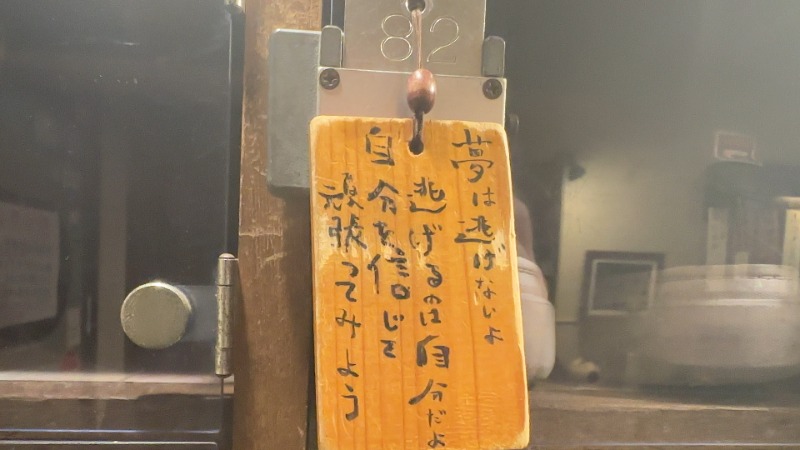 82
夢は逃げないよ
逃げるのは自分だよ
自分を信じて
頑張ってみよう